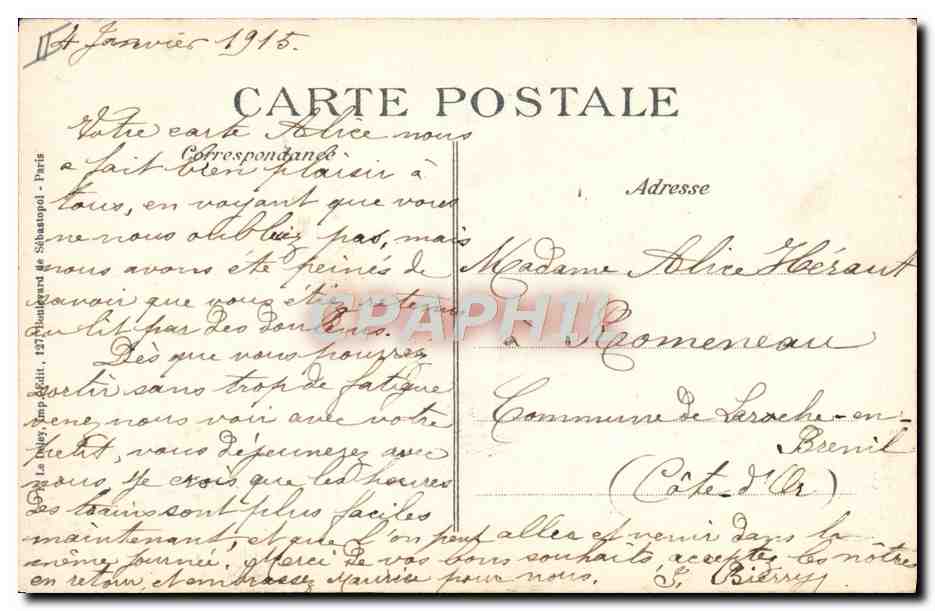 4 Janvier 1915.
CARTE POSTALE
Votre carte Alice nous
Correspondance
a fait bien plaisir à
tous, en voyant que vous
ne nous oubliez pas, mais
nous avons été peinés de
savoir que vous étiez retenue
au lit par des douleurs.
Dès que vous pourrez
sortir sans trop de fatigue
venez nous voir avec votre
petit, vous déjeunerez avec
nous, je crois que les heures
des trains sont plus faciles
maintenant, et que l'on peut aller et venir dans la
même journée. Merci de vos bons souhaits, acceptez les nôtres
en retour, et embrassez Maurice pour nous. Bierry
Adresse
Madame Alice Héraut
à Romeneau
Commune de Laroche-en-
Brenil
(Côte-d'Or)
Le Deley, Imp.-Edit., 127, Boulevard de Sébastopol - Paris
CPAPHIL